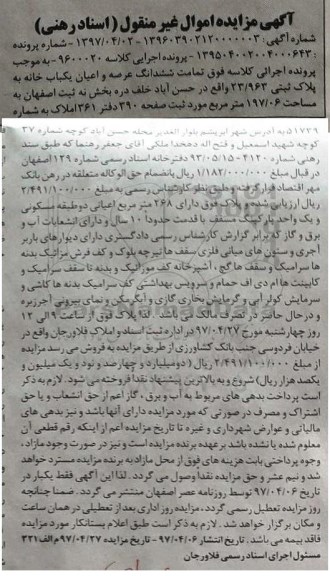 آگهی مزایده اموال غیر منقول ( اسناد رهنی )
شماره آگهی : ۱۳۹۶۰۳۹۰۲۱۲۰۰۰۰۰۳ - تاریخ آگهی : ۱۳۹۷/۰۴/۰۳ - شماره پرونده
: ۱۳۹۵۰۴۰۰۲۰۰۴۰۰۰۶۴۳ - پرونده اجرایی کلاسه ۹۶۰۰۰۲۰ - به موجب
پرونده اجرائی کلاسه فوق تمامت ششدانگ عرصه و اعیان یکباب خانه به
پلاک ثبتی ۲۳/۹۶۳ واقع در حسن آباد خلف دره بخش نه ثبت اصفهان به
مساحت ۱۹۷/۰۶ متر مربع مورد ثبت صفحه ۳۹۰ دفتر ۳۶۱ املاک به شماره
۵۱۷۳۹ به آدرس شهر ابریشم بلوار الغدیر محله حسن آباد کوچه شماره ۳۷
کوچه شهید اسمعیل و فتح اله دهخدا ملکی آقای جعفر رهنما که طبق سند
رهنی شماره ۴۱۲۰ - ۹۳/۰۵/۱۵ دفترخانه اسناد رسمی شماره ۱۲۹ اصفهان
در قبال مبلغ ۱/۱۸۲/۰۰۰/۰۰۰ ریال بانضمام حق الوکاله متعلقه در رهن بانک
مهر اقتصاد قرار گرفته و طبق نظر کارشناس رسمی به مبلغ ۲/۴۹۱/۱۰۰/۰۰۰
ریال ارزیابی شده و پلاک فوق دارای ۲۶۸ متر مربع اعیانی دو طبقه مسکونی
و یک واحد پارکینگ مسقف با قدمت حدوداً ۱۰ سال و دارای انشعابات آب و
برق و گاز که برابر گزارش کارشناس رسمی دادگستری دارای دیوارهای باربر
آجری و ستون های میانی فلزی سقف ها تیرچه بلوک و کف فرش موزائیک بدنه
ها سرامیک و سقف ها گچ ، آشپزخانه کف موزائیک و بدنه تا سقف سرامیک و
کابینت ها ام دی اف حمام و سرویس بهداشتی کف سرامیک بدنه ها کاشی و
سرامیک کولر آبی و گرمایش بخاری گازی و آبگرمکن و نمای بیرونی آجر زبره
و درحال حاضر در تصرف مالک می باشد . لذا پلاک فوق از ساعت ۹ الی ۱۲
روز چهارشنبه مورخ ۹۷/۰۴/۲۷ در اداره ثبت اسناد و املاک فلاورجان واقع در
خیابان فردوسی جنب بانک کشاورزی از طریق مزایده به فروش می رسد مزایده
از مبلغ ۲/۴۹۱/۱۰۰/۰۰۰ ریال ( دو میلیارد و چهارصد و نود و یک میلیون و
یکصد هزار ریال ) شروع و به بالاترین پیشنهاد نقدا فروخته می شود. لازم به ذکر
است پرداخت بدهی های مربوط به آب و برق ، گاز اعم از حق انشعاب و یا حق
اشتراک و مصرف در صورتی که مورد مزایده دارای آنها باشد و نیز بدهی های
مالیاتی و عوارض شهرداری و غیره تا تاریخ مزایده اعم از اینکه رقم قطعی آن
معلوم شده یا نشده باشد بر عهده برنده مزایده است و نیز در صورت وجود مازاد ،
وجوه پرداختی بابت هزینه های فوق از محل مازاد به برنده مزایده مسترد خواهد
شد و نیم عشر و حق مزایده نقدا وصول می گردد . لذا این آگهی فقط یکبار در
تاریخ ۹۷/۰۴/۰۶ توسط روزنامه عصر اصفهان منتشر می گردد . ضمنا چنانچه
روز مزایده تعطیل رسمی گردد ، مزایده روز اداری بعد از تعطیلی در همان ساعت
و مکان برگزار خواهد شد . لازم به ذکر است طبق اعلام بستانکار مورد مزایده
فاقد بیمه می باشد . تاریخ انتشار : ۹۷/۰۴/۰۶ - تاریخ مزایده ۹۷/۰۴/۲۷ م الف ۳۲۱
مسئول اجرای اسناد رسمی فلاورجان